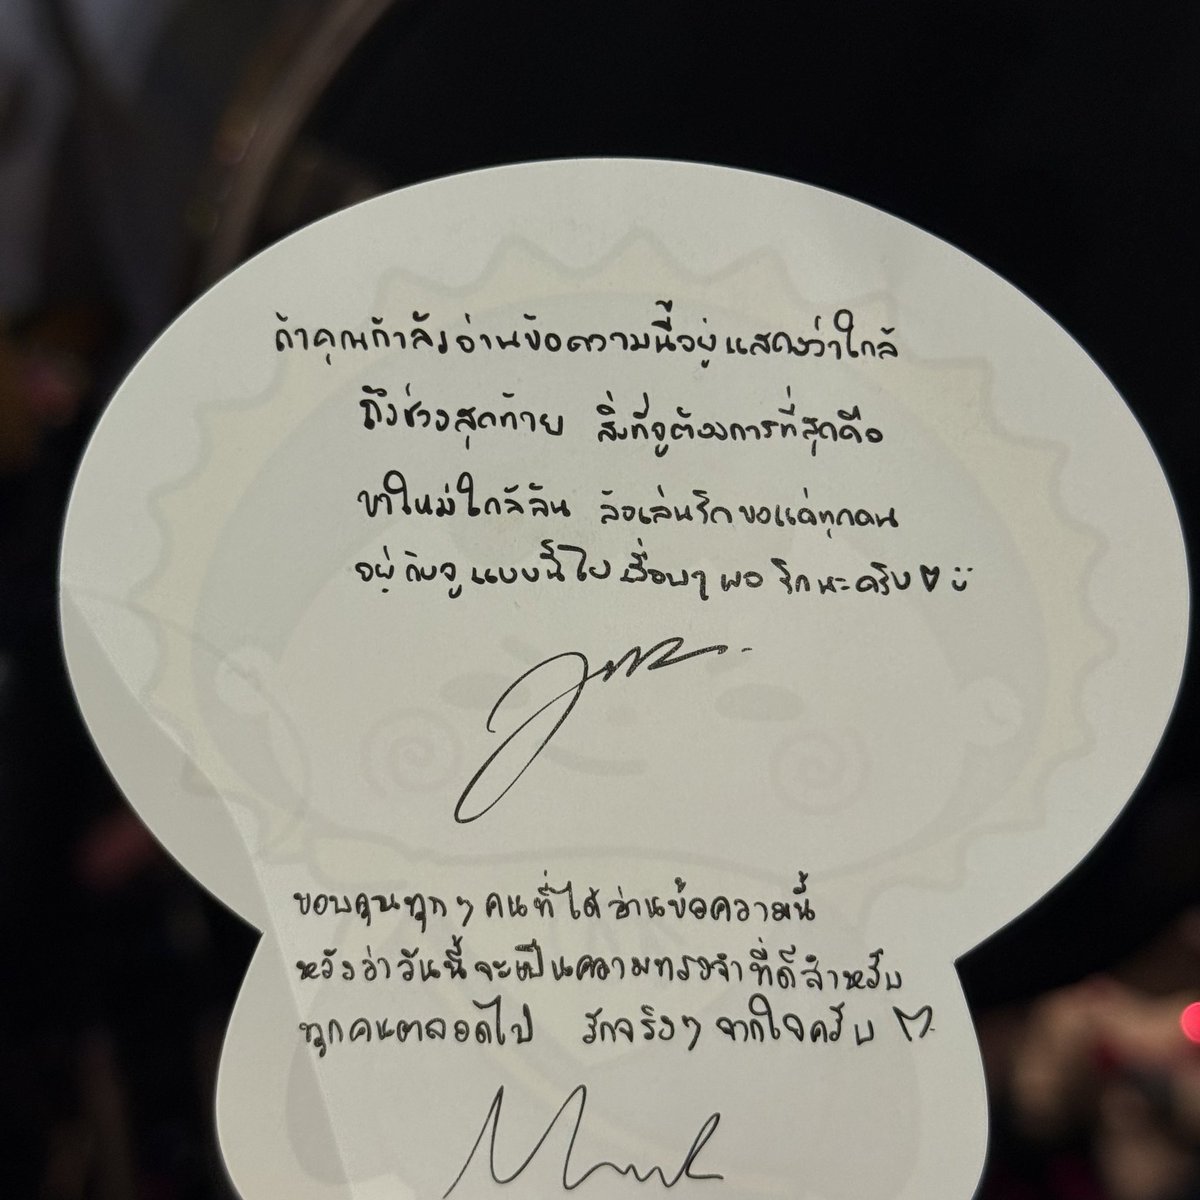 ถ้าคุณกำลังอ่านข้อความนี้อยู่แสดงว่าใกล้
ถึงช่วงสุดท้าย สิ่งที่จูต้องการที่สุดคือ
ขาใหม่ใกล้ฉัน ล้อเล่นรึก ขอแค่ทุกคน
อยู่กับจูแบบนี้ไปเรื่อยๆ พอ รักนะครับ ♡ ü
ขอบคุณทุกๆ คนที่ได้อ่านข้อความนี้
หวังว่าวันนี้จะเป็นความทรงจำที่ดีสำหรับ
ทุกคนตลอดไป รักจริงๆ จากใจครับ ♡
Mark